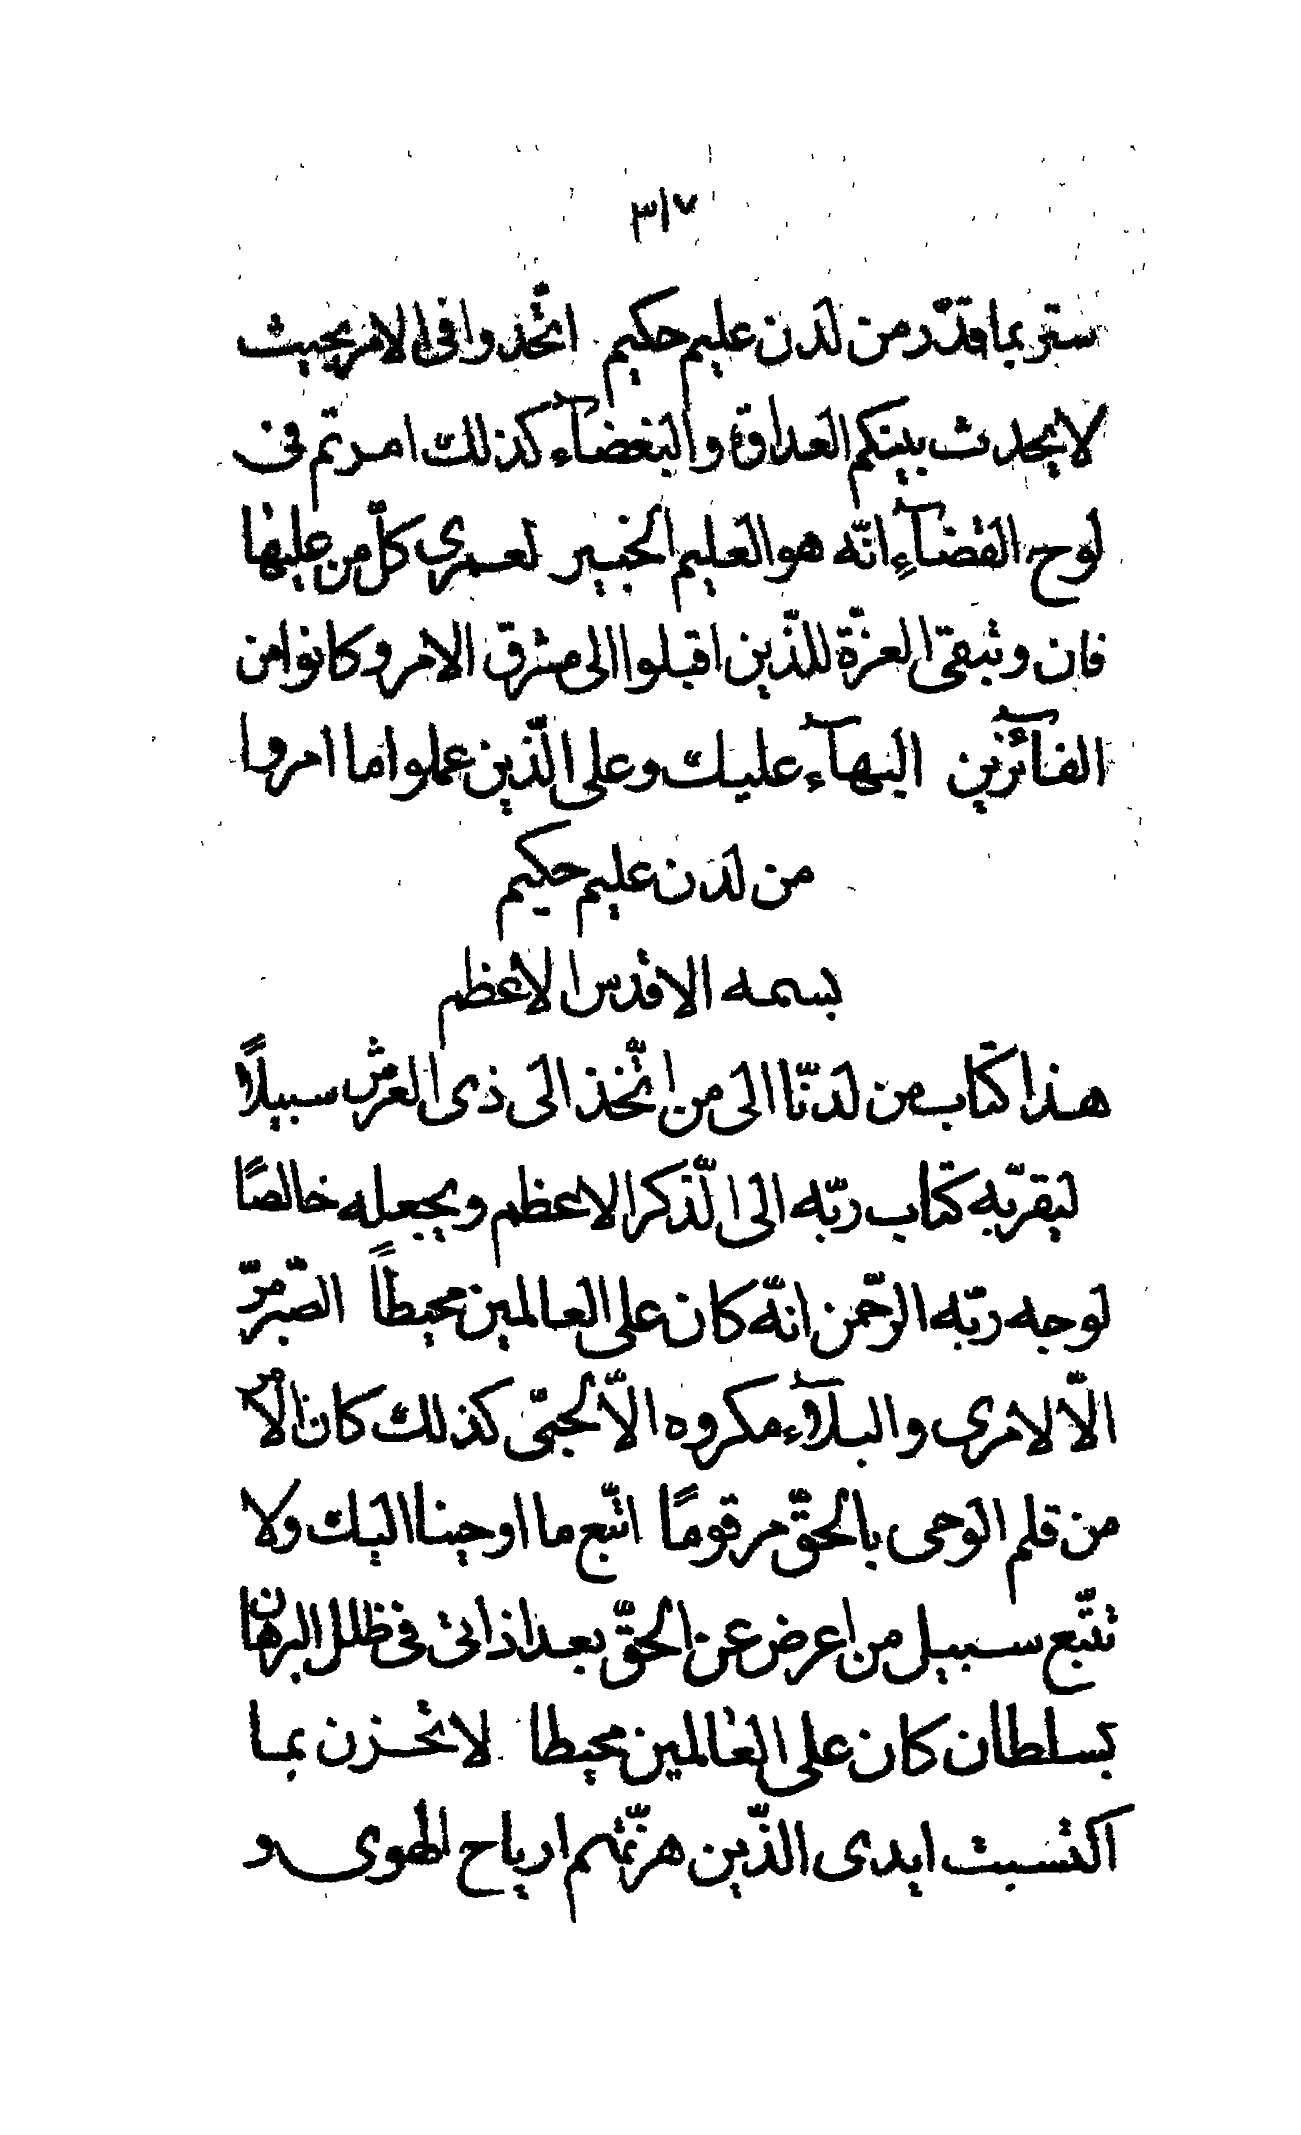 ٣١٧
ستر بما قدّر من لدن عليم حكيم اتّحدوا فی الامر بحيث
لا يحدث بينكم العداوة و البغضآء كذلك امرتم فی
لوح القضآءِ انّه هو العليم الخبير لعمری كلّ من عليها
فان و تبقی العزّة للّذين اقبلوا الی مشرق الامر و كانوا من
الفآئزين البهآء عليك و علی الّذين عملوا ما امروا
من لدن عليم حكيم
بسمه الاقدس الاعظم
هذا كتاب من لدنّا الی من اتّخذ الی ذی العرش سبيلاً
ليقربّه كتاب ربّه الی الّذكر الاعظم و يجعله خالصًا
لوجه ربّه الرّحمن انّه كان علی العالمين محيطاً الصّبر مرّ
الّا لامری و البلآء مكروه الّا لحبّی كذلك كان الامر
من قلم الوحی بالحقّ مرقومًا اتّبع ما اوحينا اليك و لا
تتّبع سبيل من اعرض عن الحقّ بعد اذ اتی فی ظلل البرهان
بسلطان كان علی العالمين محيطا لا تحزن بما
اكتسبت ايدی الذّين هزّتهم ارياح الهوی و